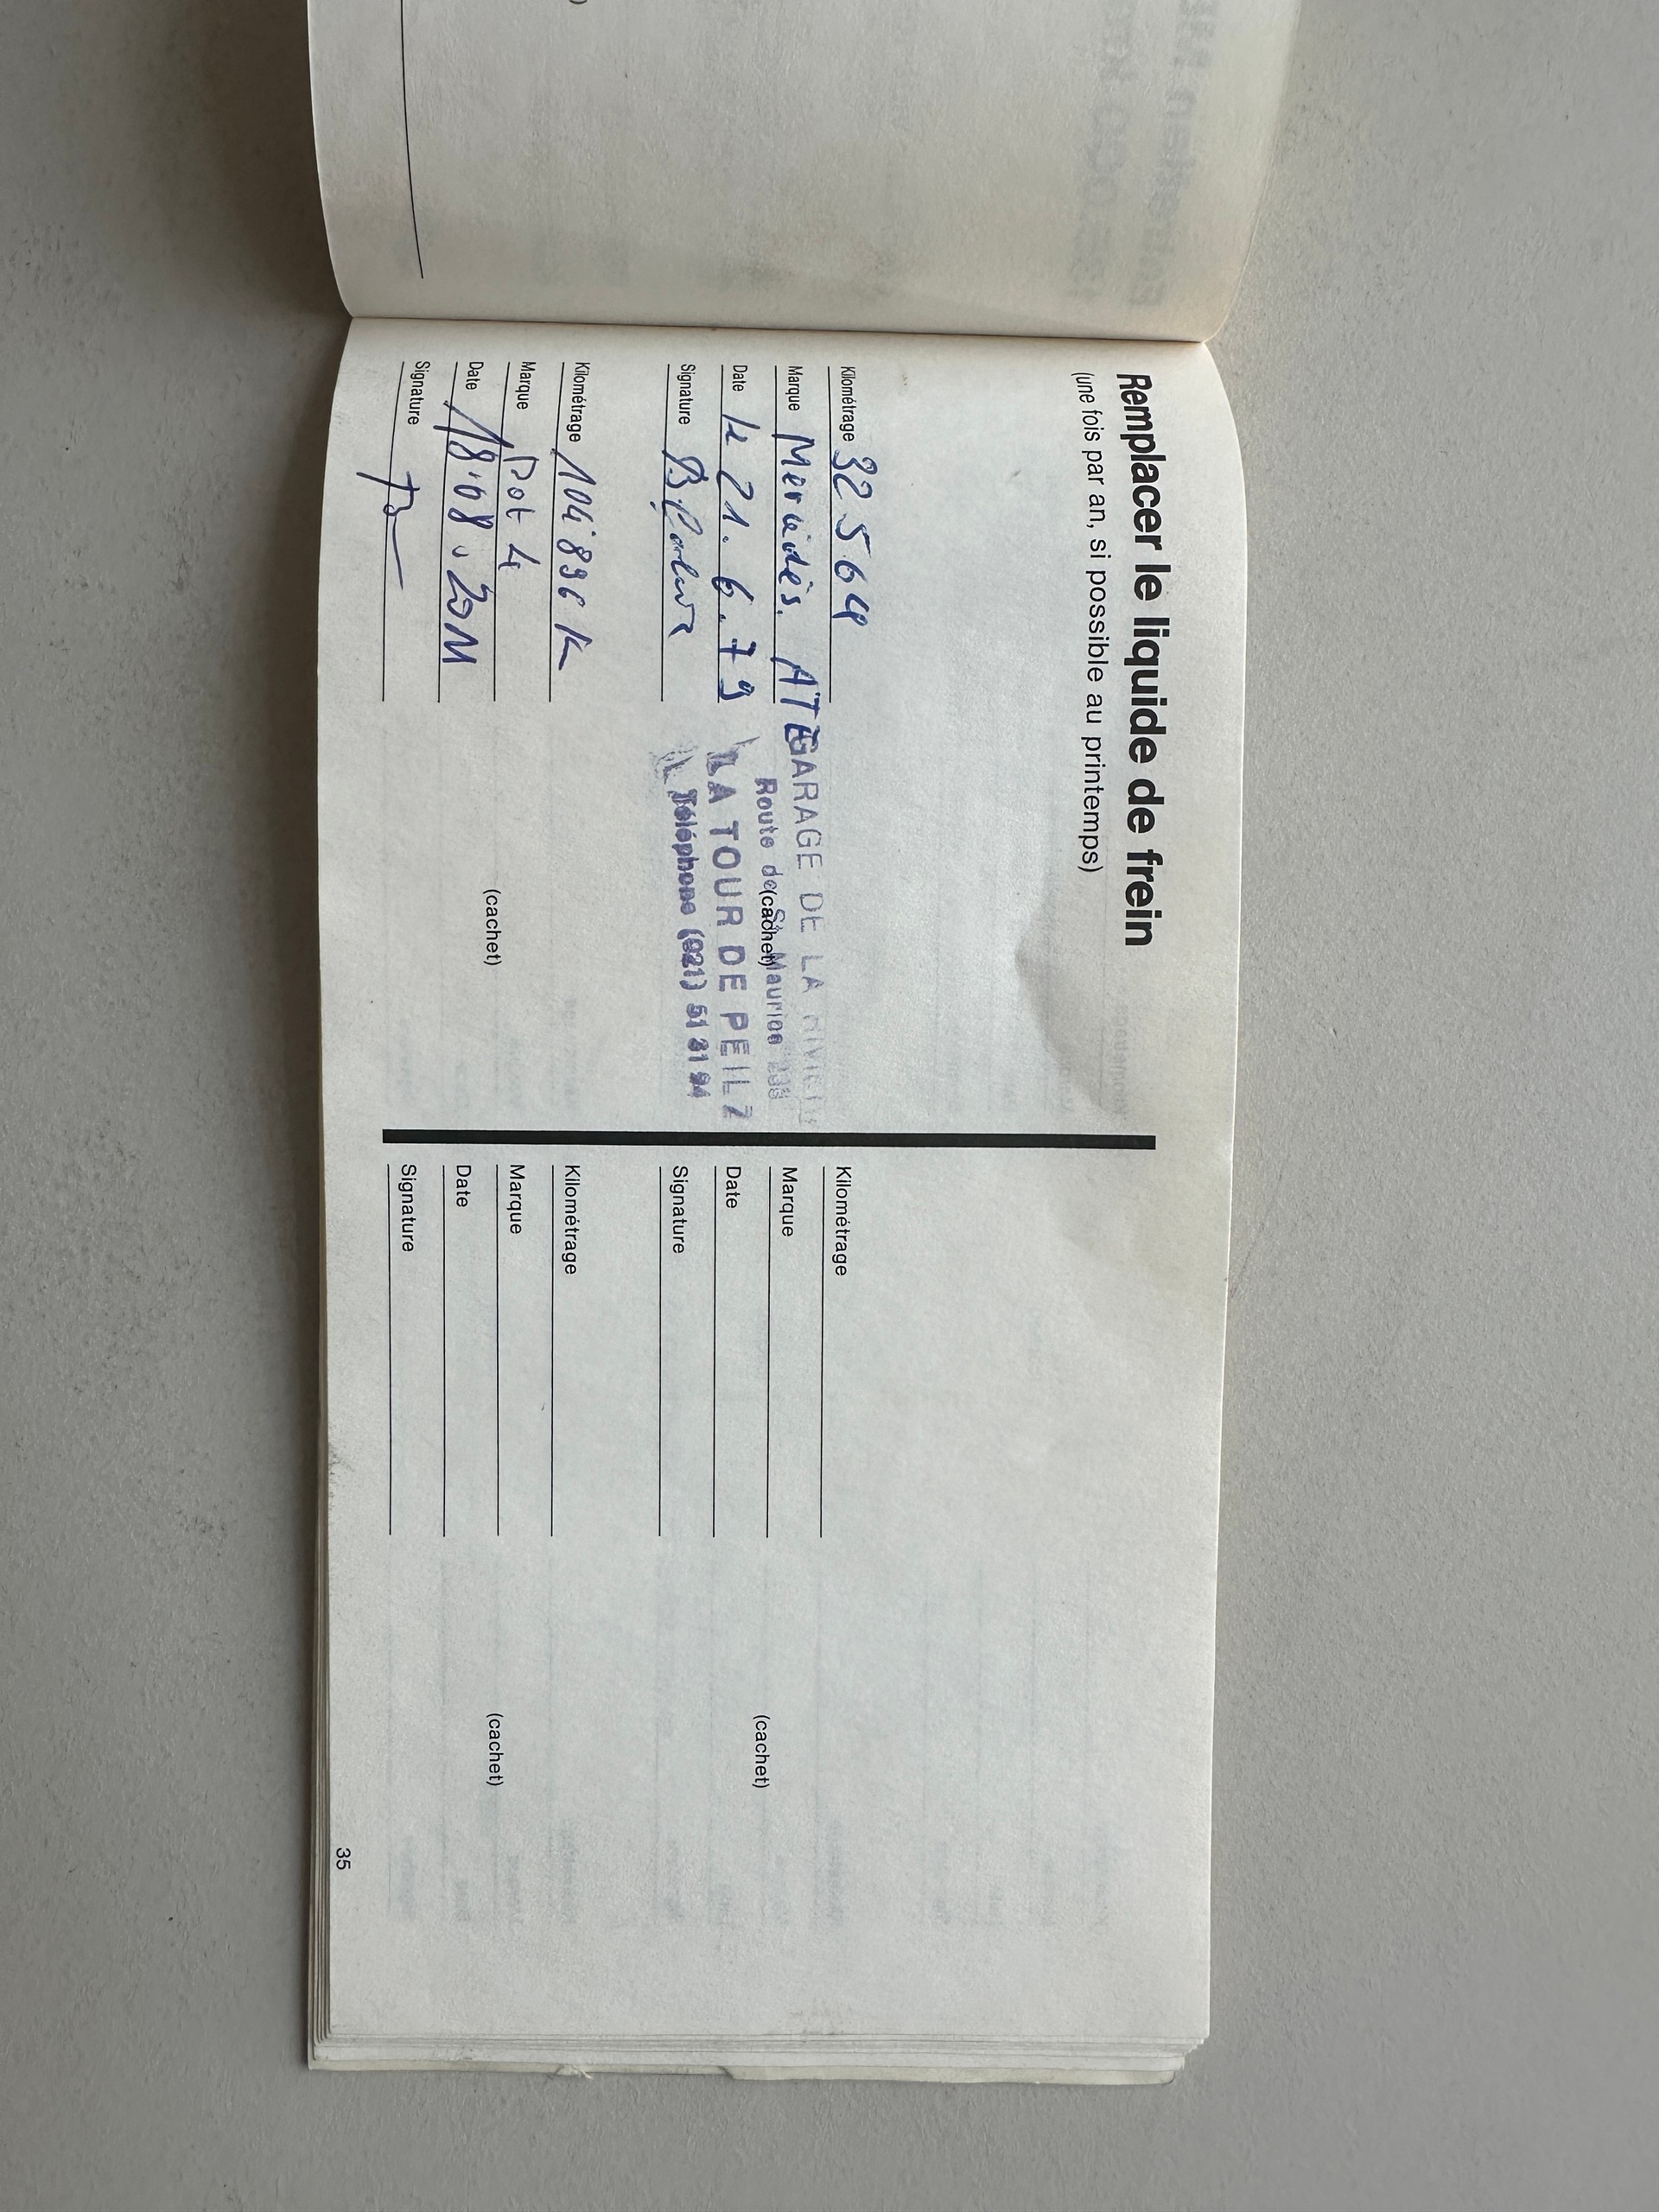 Remplacer le liquide de frein
(une fois par an, si possible au printemps)
Kilométrage 32564
Marque Mercédès. ATE
Date le 21. 6. 79
Signature
GARAGE DE LA
Route de St Maurice
LA TOUR DE PEILZ
Téléphone (021) 51 31 94
(cachet)
Kilométrage 104'896 K
Marque Dot 4
Date 18.08.2011
Signature
(cachet)
Kilométrage
Marque
Date
Signature
(cachet)
Kilométrage
Marque
Date
Signature
(cachet)
35